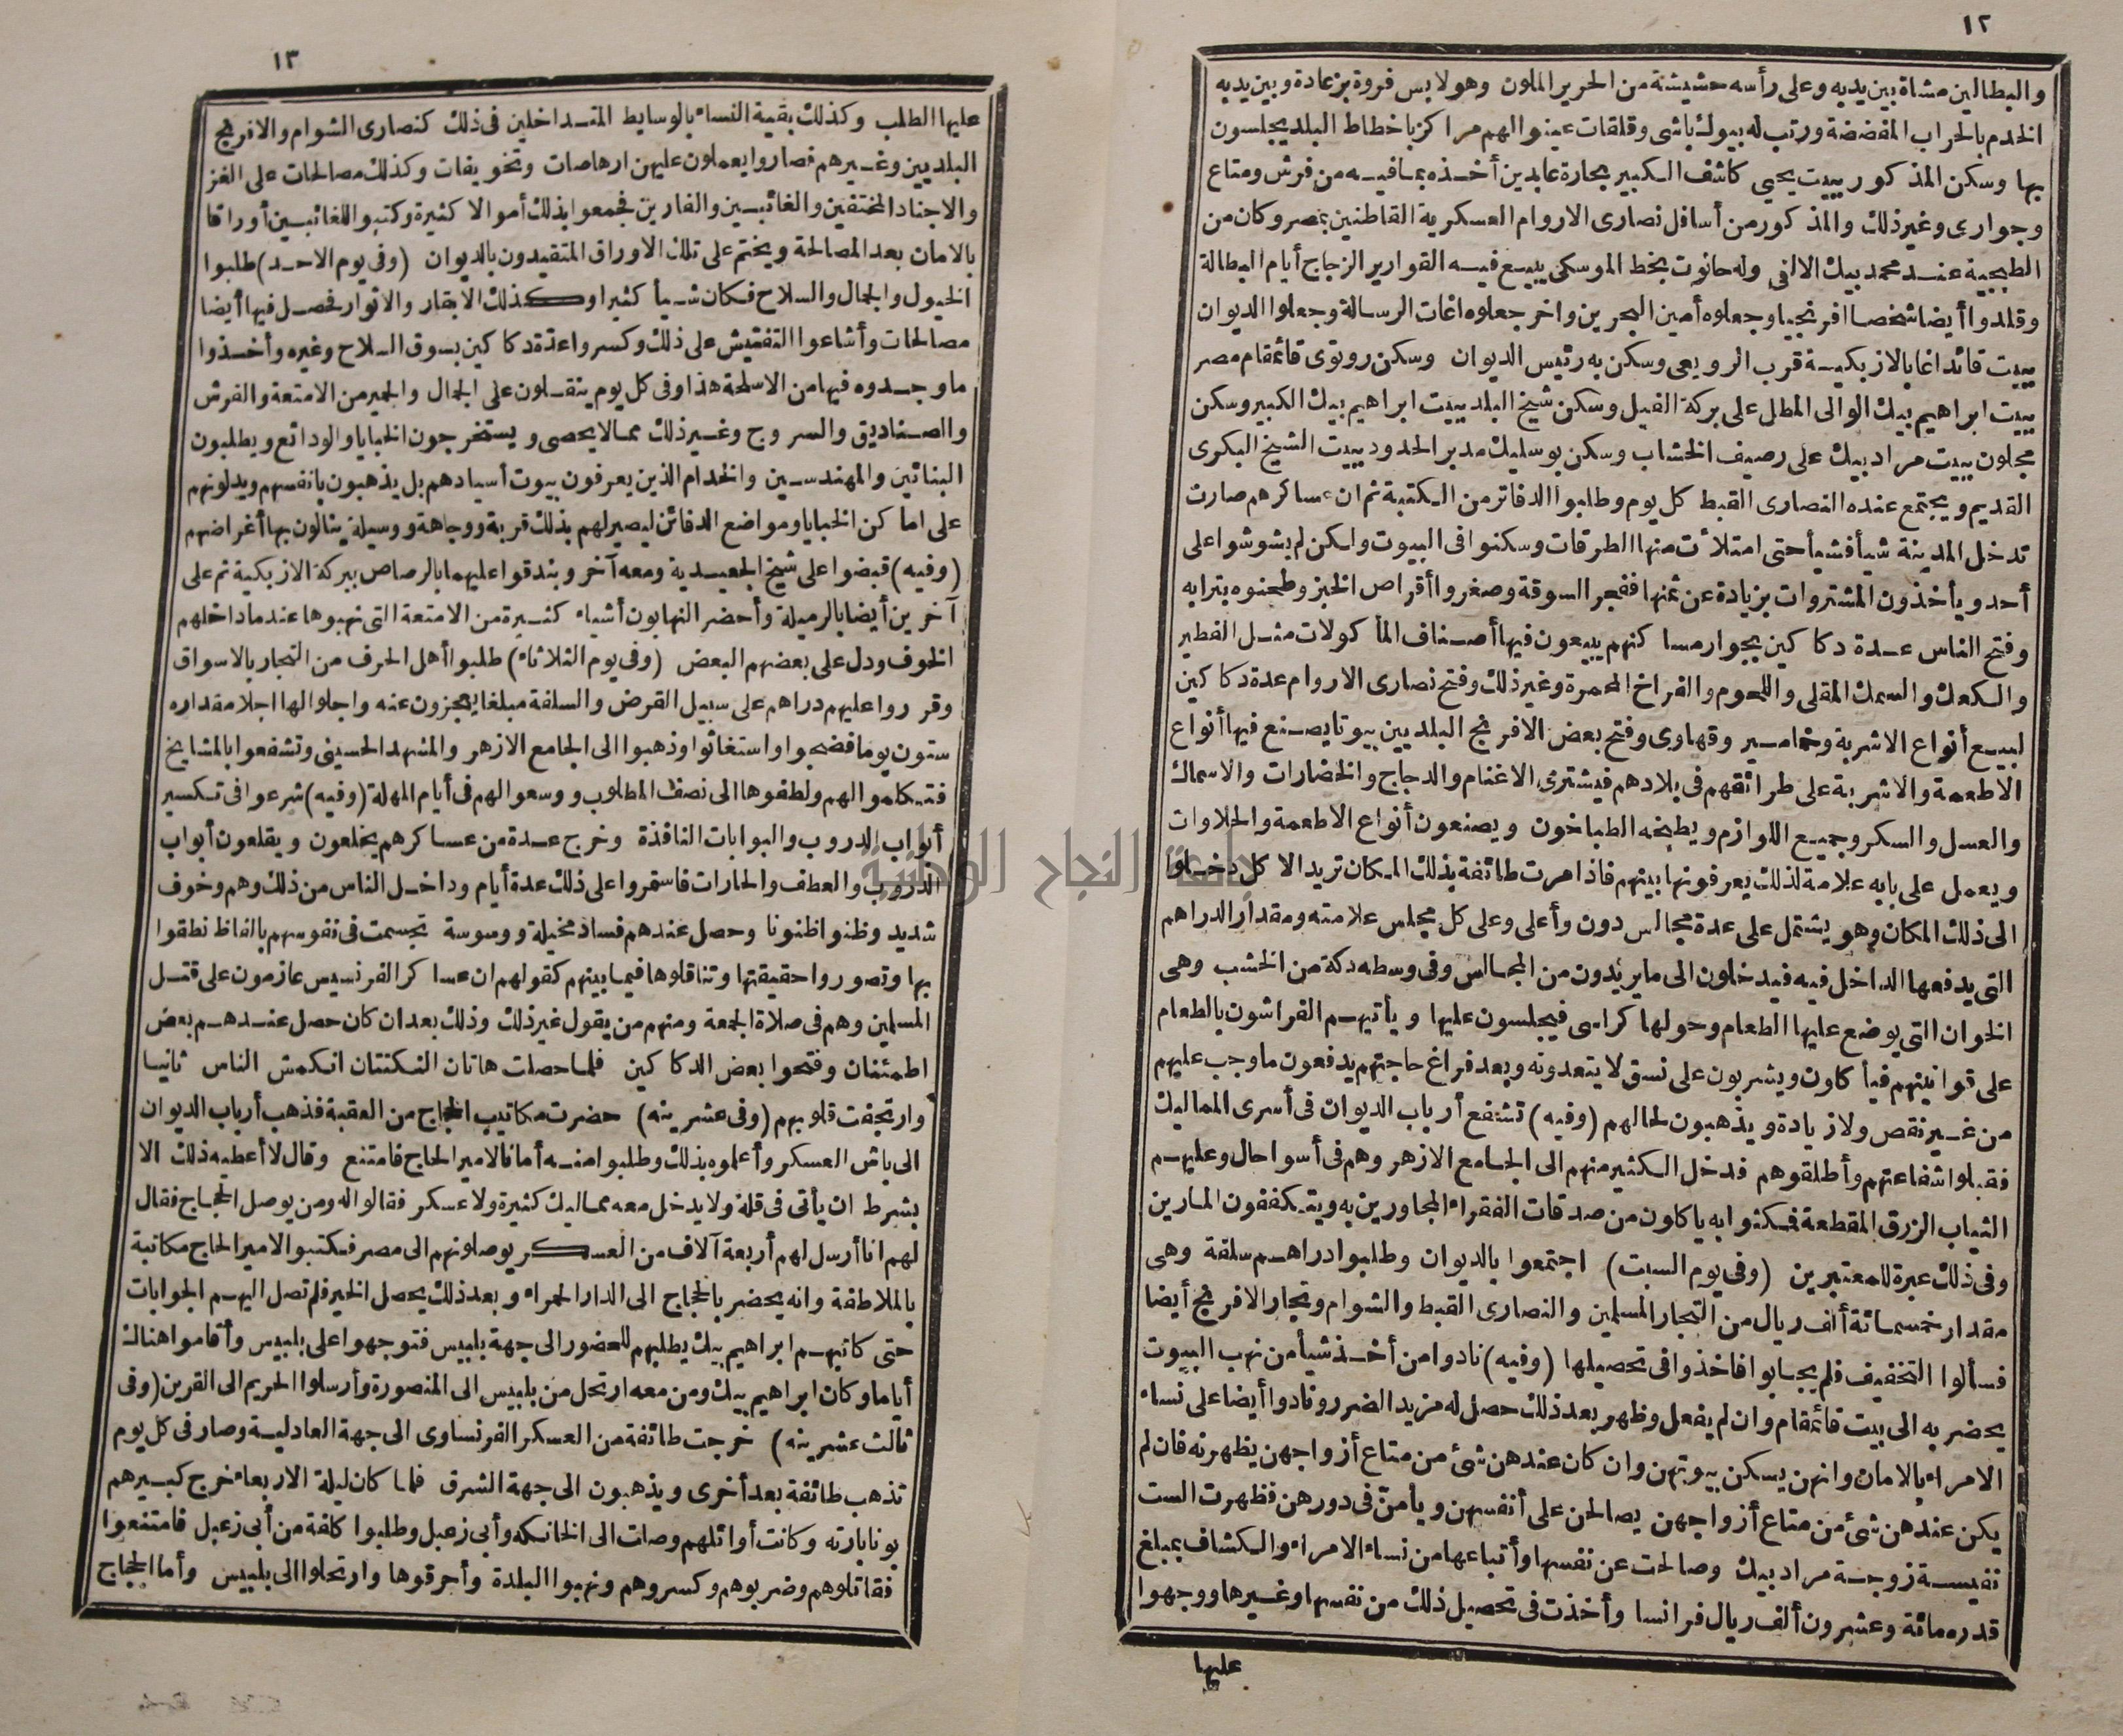 ١٢
والبطالين مشاة بين يديه وعلى رأسه حشيشة من الحرير الملون وهو لابس فروة بز عادة وبين يديه
الخدم بالحراب المفضضة ورتب له بيوك باشى وقلقات عينوا لهم مراكز باخطاط البلد يجلسون
بها وسكن المذكور ببيت يحيى كاشف الكبير بحارة عابدين أخذه بما فيه من فرش ومتاع
وجوارى وغير ذلك والمذكور من أسافل نصارى الاروام العسكرية القاطنين بمصر وكان من
الطبجية عند محمد بيك الالفى وله حانوت بخط الموسكى يبيع فيه القوارير الزجاج أيام البطالة
وقلدوا أيضا شخصا افرنجيا وجعلوه أمين البحرين واخر جعلوه اغات الرسالة وجعلوا الديوان
ببيت قائد اغا بالازبكية قرب الرويعى وسكن به رئيس الديوان وسكن روتوى قائمقام مصر
ببيت ابراهيم بيك الوالى المطل على بركة الفيل وسكن شيخ البلد ببيت ابراهيم بيك الكبير وسكن
مجلون ببيت مراد بيك على رصيف الخشاب وسكن بوسليك مدبر الحدود ببيت الشيخ البكرى
القديم ويجتمع عنده النصارى القبط كل يوم وطلبوا الدفاتر من الكتبة ثم ان عساكرهم صارت
تدخل المدينة شيأ فشيأ حتى امتلأت منها الطرقات وسكنوا فى البيوت ولكن لم يشوشوا على
أحد ويأخذون المشتروات بزيادة عن ثمنها ففجر السوقة وصغروا أقراص الخبز وطحنوه بترابه
وفتح الناس عدة دكاكين بجوار مساكنهم يبيعون فيها أصناف المأكولات مثل الفطير
والكعك والسمك المقلى واللحوم والفراخ المحمرة وغير ذلك وفتح نصارى الاروام عدة دكاكين
لبيع أنواع الاشربة وخمامير وقهاوى وفتح بعض الافرنج البلديين بيوتا يصنع فيها أنواع
الاطعمة والاشربة على طرائقهم فى بلادهم فيشترى الاغنام والدجاج والخضارات والاسماك
والعسل والسكر وجميع اللوازم ويطبخه الطباخون ويصنعون أنواع الاطعمة والحلاوات
ويعمل على بابه علامة لذلك يعرفونها بينهم فاذا مرت طائفة بذلك المكان تريد الاكل دخلوا
الى ذلك المكان وهو يشتمل على عدة مجالس دون وأعلى وعلى كل مجلس علامته ومقدار الدراهم
التى يدفعها الداخل فيه فيدخلون الى ما يريدون من المجالس وفى وسطه دكة من الخشب وهى
الخوان التى يوضع عليها الطعام وحولها كراسى فيجلسون عليها ويأتيهم الفراشون بالطعام
على قوانينهم فيأكلون ويشربون على نسق لا يتعدونه وبعد فراغ حاجتهم يدفعون ما وجب عليهم
من غير نقص ولا زيادة ويذهبون لحالهم (وفيه) تشفع أرباب الديوان فى أسرى المماليك
فقبلوا شفاعتهم وأطلقوهم فدخل الكثير منهم الى الجامع الازهر وهم فى أسوا حال وعليهم
الثياب الزرق المقطعة فمكثوا به ياكلون من صدقات الفقراء المجاورين به ويتكففون المارين
وفى ذلك عبرة للمعتبرين (وفى يوم السبت) اجتمعوا بالديوان وطلبوا دراهم سلفة وهى
مقدار خمسمائة ألف ريال من التجار المسلمين والنصارى القبط والشوام وتجار الافرنج أيضا
فسألوا التخفيف فلم يجابوا فاخذوا فى تحصيلها (وفيه) نادوا من أخذ شيأ من نهب البيوت
يحضر به الى بيت قائمقام وان لم يفعل وظهر بعد ذلك حصل له مزيد الضرر ونادوا أيضا على نساء
الامراء بالامان وانهن يسكن بيوتهن وان كان عندهن شئ من متاع أزواجهن يظهرنه فان لم
يكن عندهن شئ من متاع أزواجهن يصالحن على أنفسهن ويأمنّ فى دورهن فظهرت الست
نفيسة زوجة مراد بيك وصالحت عن نفسها وأتباعها من نساء الامراء والكشاف بمبلغ
قدره مائة وعشرون ألف ريال فرانسا وأخذت فى تحصيل ذلك من نفسها وغيرها ووجهوا
عليها
١٣
عليها الطلب وكذلك بقية النساء بالوسايط المتداخلين فى ذلك كنصارى الشوام والافرنج
البلديين وغيرهم فصاروا يعملون عليهن ارهاصات وتخويفات وكذلك مصالحات على الغز
والاجناد المختفين والغائبين والفارين فجمعوا بذلك أموالا كثيرة وكتبوا للغائبين أوراقا
بالامان بعد المصالحة ويختم على تلك الاوراق المتقيدون بالديوان (وفى يوم الاحد) طلبوا
الخيول والجمال والسلاح فكان شيأ كثيرا وكذلك الابقار والاثوار فحصل فيها أيضا
مصالحات وأشاعوا التفتيش على ذلك وكسروا عدة دكاكين بسوق السلاح وغيره وأخذوا
ما وجدوه فيها من الاسلحة هذا وفى كل يوم ينقلون على الجمال والحمير من الامتعة والفرش
والصناديق والسروج وغير ذلك مما لا يحصى ويستخرجون الخبايا والودائع ويطلبون
البنائين والمهندسين والخدام الذين يعرفون بيوت أسيادهم بل يذهبون بانفسهم ويدلونهم
على اماكن الخبايا ومواضع الدفائن ليصير لهم بذلك قربة ووجاهة ووسيلة ينالون بها أغراضهم
(وفيه) قبضوا على شيخ الجعيدية ومعه آخر وبندقوا عليهما بالرصاص ببركة الازبكية ثم على
آخرين أيضا بالرميلة وأحضر النهابون أشياء كثيرة من الامتعة التى نهبوها عندما داخلهم
الخوف ودل على بعضهم البعض (وفى يوم الثلاثاء) طلبوا أهل الحرف من التجار بالاسواق
وقرروا عليهم دراهم على سبيل القرض والسلفة مبلغا يعجزون عنه واجلوا لها اجلا مقداره
ستون يوما فضجوا واستغاثوا وذهبوا الى الجامع الازهر والمشهد الحسينى وتشفعوا بالمشايخ
فتكلموا لهم ولطفوها الى نصف المطلوب ووسعوا لهم فى أيام المهلة (وفيه) شرعوا فى تكسير
أبواب الدروب والبوابات النافذة وخرج عدة من عساكرهم يخلعون ويقلعون أبواب
الدروب والعطف والحارات فاستمروا على ذلك عدة أيام وداخل الناس من ذلك وهم وخوف
شديد وظنوا ظنونا وحصل عندهم فساد مخيلة ووسوسة تجسمت فى نفوسهم بالفاظ نطقوا
بها وتصوروا حقيقتها وتناقلوها فيما بينهم كقولهم ان عساكر الفرنسيس عازمون على قتل
المسلمين وهم فى صلاة الجمعة ومنهم من يقول غير ذلك وذلك بعد ان كان حصل عندهم بعض
اطمئنان وفتحوا بعض الدكاكين فلما حصلت هاتان النكتتان انكمش الناس ثانيا
وارتجفت قلوبهم (وفى عشرينه) حضرت مكاتيب الحجاج من العقبة فذهب أرباب الديوان
الى باش العسكر وأعلموه بذلك وطلبوا منه أمانا لامير الحاج فامتنع وقال لا أعطيه ذلك الا
بشرط ان يأتى فى قلة ولا يدخل معه مماليك كثيرة ولا عسكر فقالوا له ومن يوصل الحجاج فقال
لهم انا أرسل لهم أربعة آلاف من العسكر يوصلونهم الى مصر فكتبوا لامير الحاج مكاتبة
بالملاطفة وانه يحضر بالحجاج الى الدار الحمراء وبعد ذلك يحصل الخير فلم تصل اليهم الجوابات
حتى كاتبهم ابراهيم بيك يطلبهم للحضور الى جهة بلبيس فتوجهوا على بلبيس وأقاموا هناك
أياما وكان ابراهيم بيك ومن معه ارتحل من بلبيس الى المنصورة وأرسلوا الحريم الى القرين (وفى
ثالث عشرينه) خرجت طائفة من العسكر الفرنساوى الى جهة العادلية وصار فى كل يوم
تذهب طائفة بعد أخرى ويذهبون الى جهة الشرق فلما كان ليلة الاربعاء خرج كبيرهم
بونابارته وكانت أوائلهم وصلت الى الخانكه وأبى زعبل وطلبوا كلفة من أبى زعبل فامتنعوا
فقاتلوهم وضربوهم وكسروهم ونهبوا البلدة وأحرقوها وارتحلوا الى بلبيس وأما الحجاج
جامعة النجاح الوطنية